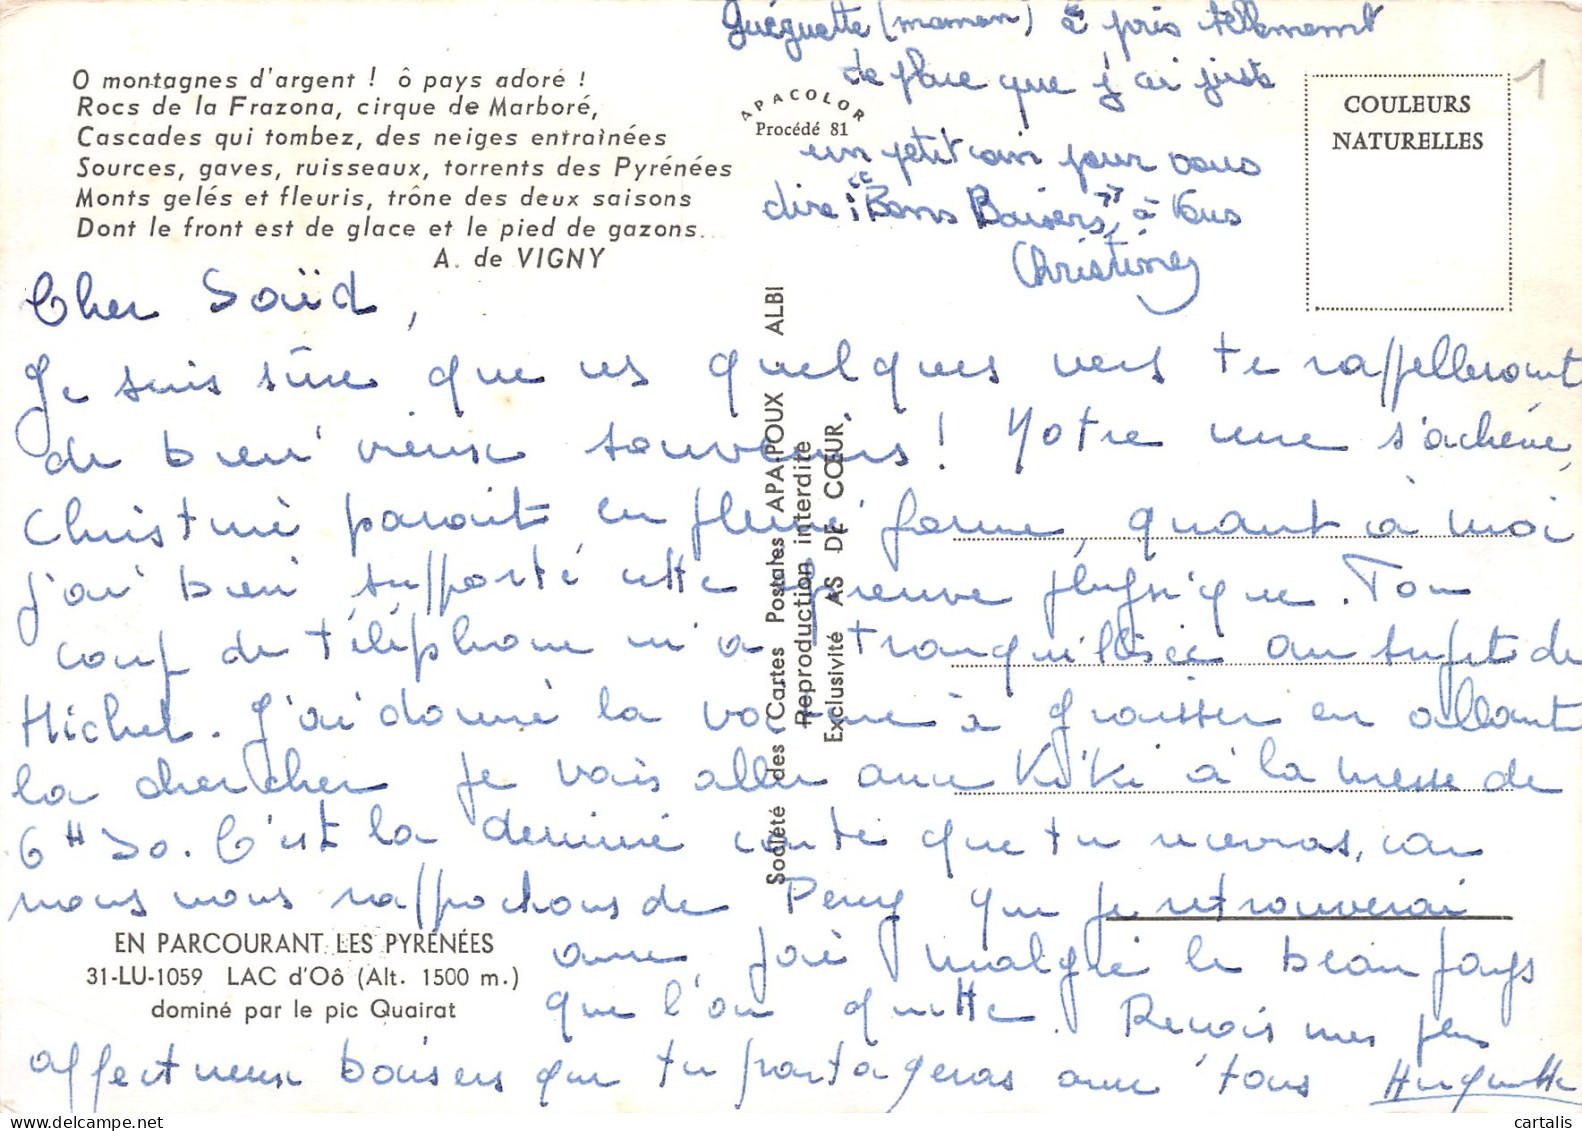 O montagnes d'argent ! ô pays adoré !
Rocs de la Frazona, cirque de Marboré,
Cascades qui tombez, des neiges entraînées
Sources, gaves, ruisseaux, torrents des Pyrénées
Monts gelés et fleuris, trône des deux saisons
Dont le front est de glace et le pied de gazons...
A. de VIGNY
(maman) à pris tellement
de place que j'ai juste
un petit coin pour vous
dire : "Bons Baisers" à tous
Christine
APACOLOR
Procédé 81
COULEURS
NATURELLES
1
Cher Saïd,
Je suis sûre que ces quelques vers te rappelleront
de bien vieux souvenirs ! Notre cure s'achève,
Christine parait en pleine forme, quant à moi
j'ai bien supporté cette épreuve physique. Ton
coup de téléphone m'a tranquillisée au sujet de
Michel. J'ai donné la voiture à graisser en allant
la chercher je vais aller avec Kiki à la messe de
6H 30. C'est la dernière carte que tu recevras, car
nous nous rapprochons de Percy que je retrouverai
avec joie malgré le beau pays
que l'on quitte. Reçois mes plus
affectueux baisers que tu partageras avec tous Huguette
Société des Cartes Postales APA-POUX - ALBI
Reproduction interdite
Exclusivité AS DE CŒUR
EN PARCOURANT LES PYRÉNÉES
31-LU-1059 LAC d'Oô (Alt. 1500 m.)
dominé par le pic Quairat
cartalis